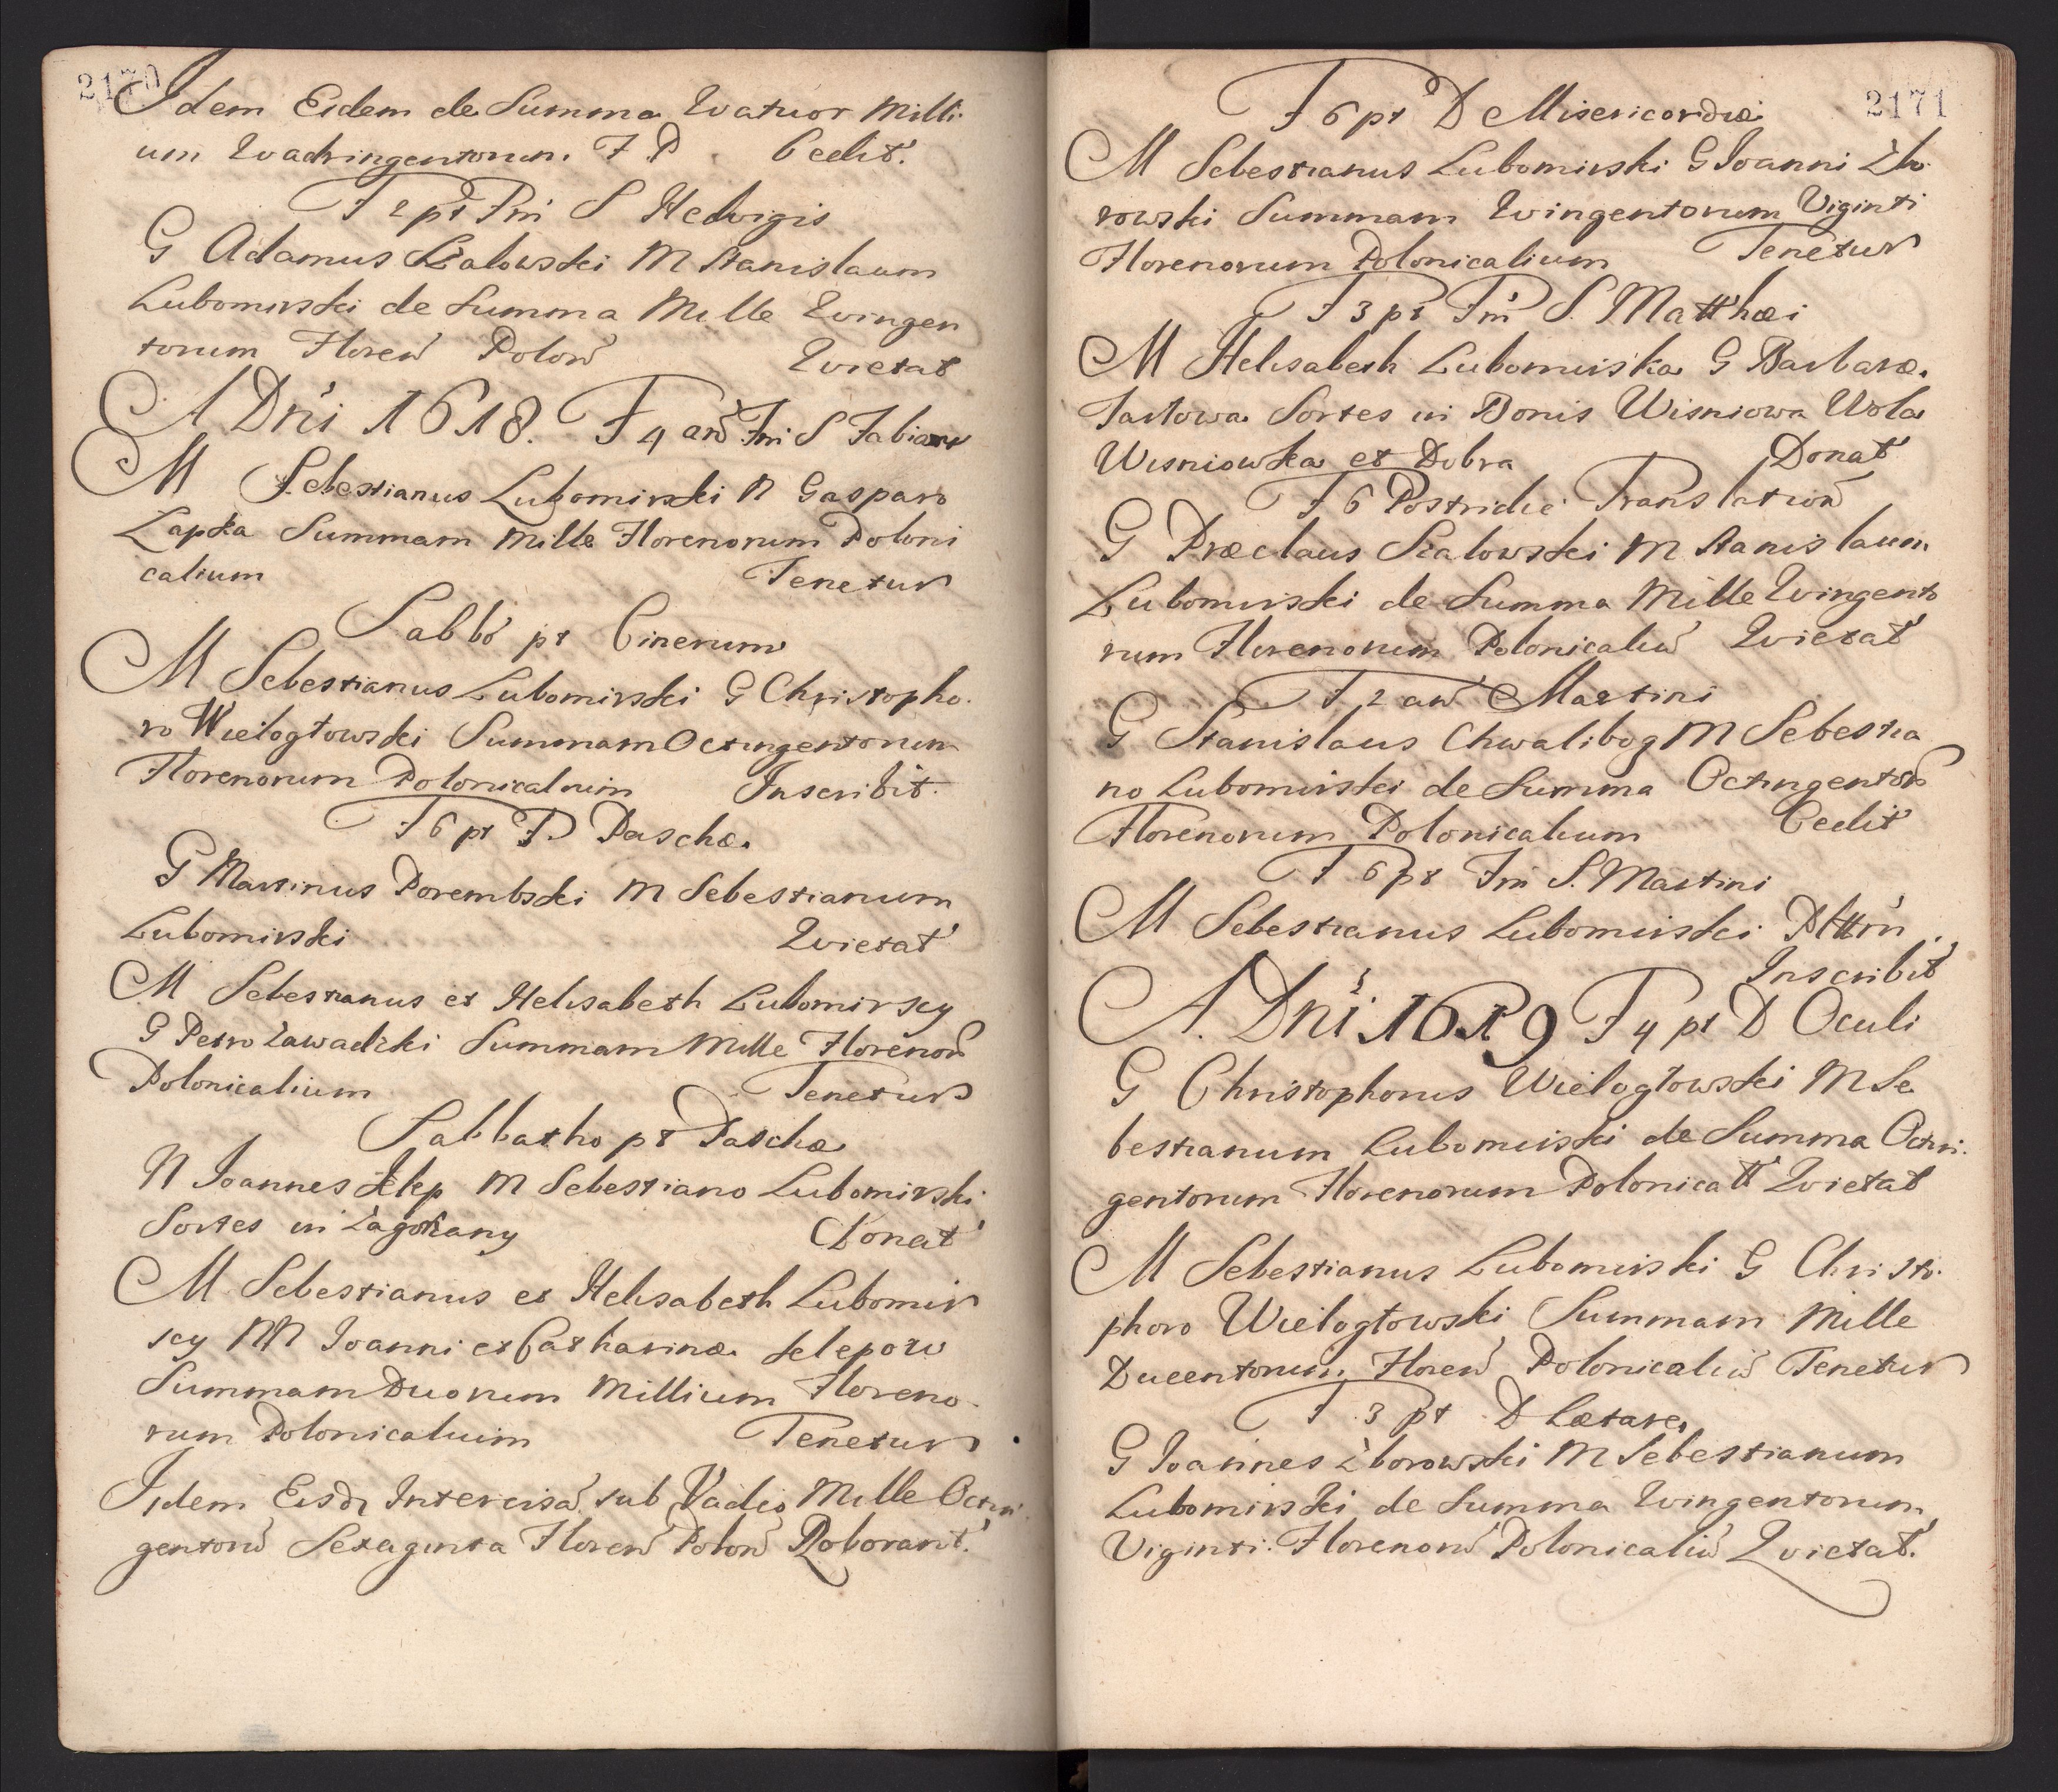 2170
Idem Eidem de Summa Qvatuor Milli
um Qvadringentorum F P Cedit
F 2 pt Fm S Hedvigis
G Adamus Białowski M Stanislaum
Lubomirski de Summa Mille Qvingen
torum Floren Polon Qvietat
A Dni 1618. F 4 an Fm S Fabiani
M Sebestianus Lubomirski N Gasparo
Łapka Summam Mille Florenorum Poloni
calium Tenetur
Sabbo pt Cinerum
M Sebestianus Lubomirski G Christopho
ro Wielogłowski Summam Octingentorum
Florenorum Polonicalium Inscribit
F 6 pt F. Paschæ
G Martinus Porembski M Sebestianum
Lubomirski Qvietat
M Sebestianus et Helisabeth Lubomirscy
G Petro Zawadzki Summam Mille Florenor
Polonicalium Tenetur
Sabbatho pt Pascha
N Joannes Selep M Sebestiano Lubomirski
Sortes in Zagorzany Donat
M Sebestianus et Helisabeth Lubomir
scy NN Joanni et Catharinæ Selepow
Summam Duorum Millium Floreno
rum Polonicalium Tenetur
Iidem Eisd Intercisa sub Vadio Mille Octin
gentoru Sexaginta Floren Polon Roborant.
2171
F 6 pt D Misericordiæ
M Sebestianus Lubomirski G Joanni Zbo
rowski Summam Qvingentorum Viginti
Florenorum Polonicalium Tenetur
F 3 pt Fm S. Matthæi
M Helisabeth Lubomirska G Barbaræ
Tarłowa Sortes in Bonis Wisniowa Wola
Wisniowska et Dobra Donat
F 6 Postridie Translation
G Præclaus Białowski M Stanislaum
Lubomirski de Summa Mille Qvingento
rum Florenorum Polonicaliu Qvietat
F 2 an Martini
G Stanislaus Chwalibog M Sebestia
no Lubomirski de Summa Octingentor
Florenorum Polonicalium Cedit
F 6 pt Fm S. Martini
M Sebestianus Lubomirski
Inscribit
A. Dni 1619 F 4 pt D Oculi
G Christophorus Wielogłowski M Se
bestianum Lubomirski de Summa Octin
gentorum Florenorum Polonicall Qvietat
M Sebestianus Lubomirski G Christo
phoro Wielogłowski Summam Mille
Ducentorum Floren Polonicaliu Tenetur
F 3 pt D Lætare
G Joannes Zborowski M Sebestianum
Lubomirski de Summa Qvingentorum
Viginti Florenoru Polonicaliu Qvietat.